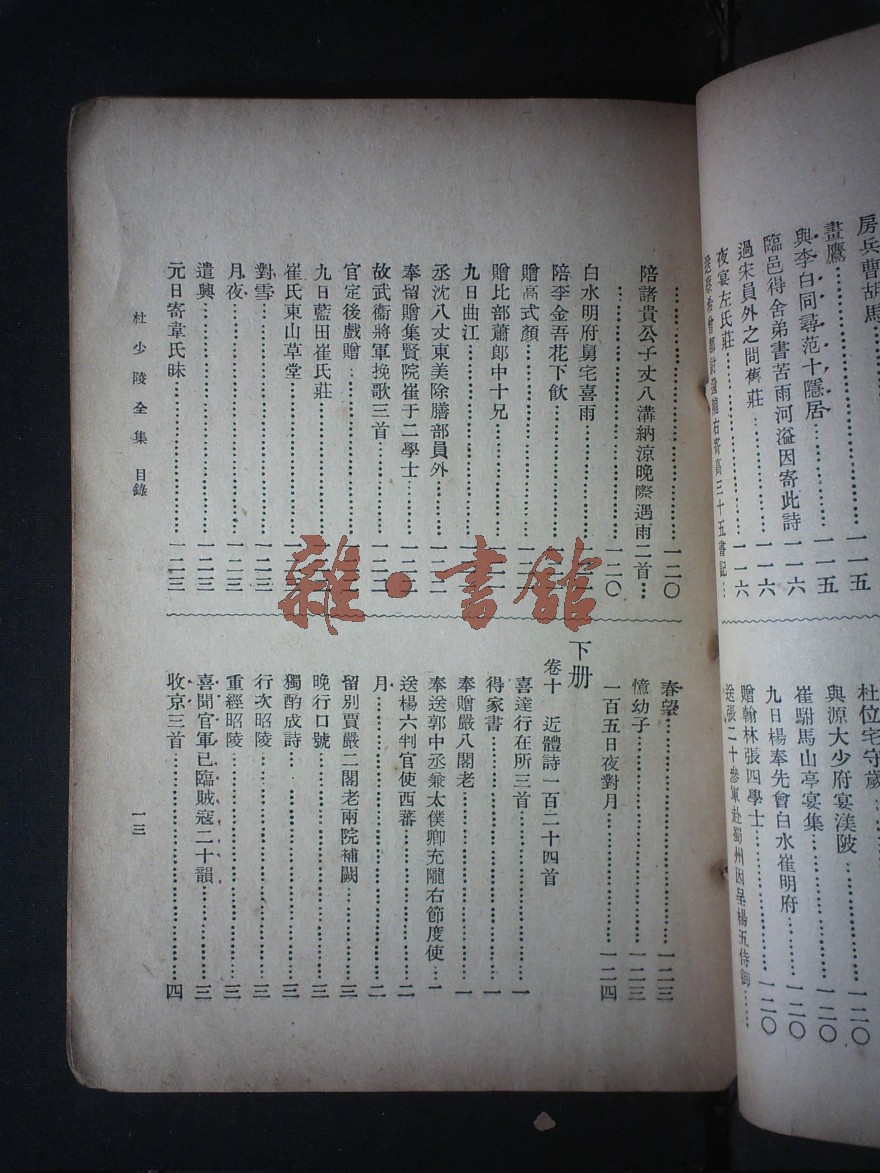 房兵曹胡馬……一一五
畫鷹……一一五
與李白同尋范十隱居……一一五
臨邑得舍弟書苦雨河溢因寄此詩……一一六
過宋員外之問舊莊……一一六
夜宴左氏莊……一一六
右寄高三十五書記…
杜位宅守歲……一二〇
與源大少府宴渼陂……一二〇
崔駙馬山亭宴集……一二〇
九日楊奉先會白水崔明府……一二〇
贈翰林張四學士
送張二十參軍赴蜀州因呈楊五侍御……
……一二〇
陪諸貴公子丈八溝納涼晚際遇雨二首…一二〇
白水明府舅宅喜雨
陪李金吾花下飲
贈高式顏
贈比部蕭郎中十兄
九日曲江
丞沈八丈東美除膳部員外
奉留贈集賢院崔于二學士
故武衞將軍挽歌三首
官定後戲贈
九日藍田崔氏莊
崔氏東山草堂
對雪……一二三
月夜……一二三
遣興……一二三
元日寄韋氏昧……一二三
春望……一二三
憶幼子……一二三
一百五日夜對月……一二四
下册
卷十 近體詩一百二十四首
喜達行在所三首……一
得家書……一
奉贈嚴八閣老……一
奉送郭中丞兼太僕卿充隴右節度使…一
送楊六判官使西蕃……二
月……二
留別賈嚴二閣老兩院補闕……三
晚行口號……三
獨酌成詩……三
行次昭陵……三
重經昭陵……三
喜聞官軍已臨賊寇二十韻……三
收京三首……四
杜少陵全集 目錄
一三
雜·書館